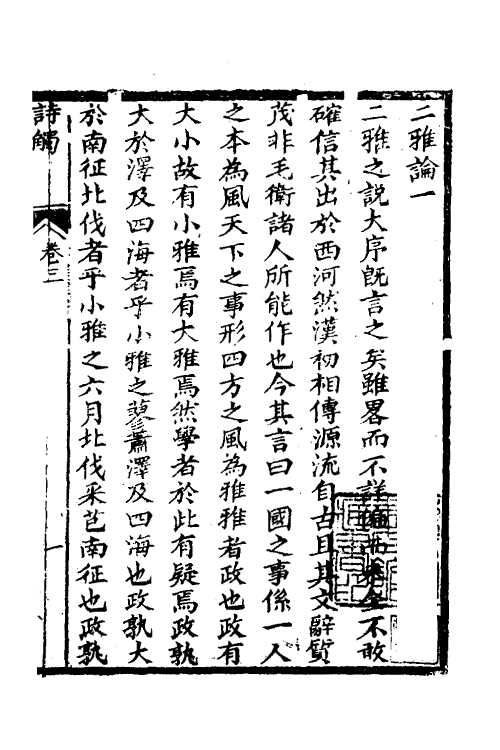 二雅論一
二雅之說大序旣言之矣雖畧而不詳 不敢
確信其出於西河然漢初相傳源流自古且其文辭質
茂非毛衛諸人所能作也今其言曰一國之事係一人
之本為風天下之事形四方之風為雅雅者政也政有
大小故有小雅焉有大雅焉然學者於此有疑焉政孰
大於澤及四海者乎小雅之蓼蕭澤及四海也政孰大
於南征北伐者乎小雅之六月北伐采芑南征也政孰
詩觸
卷三
一